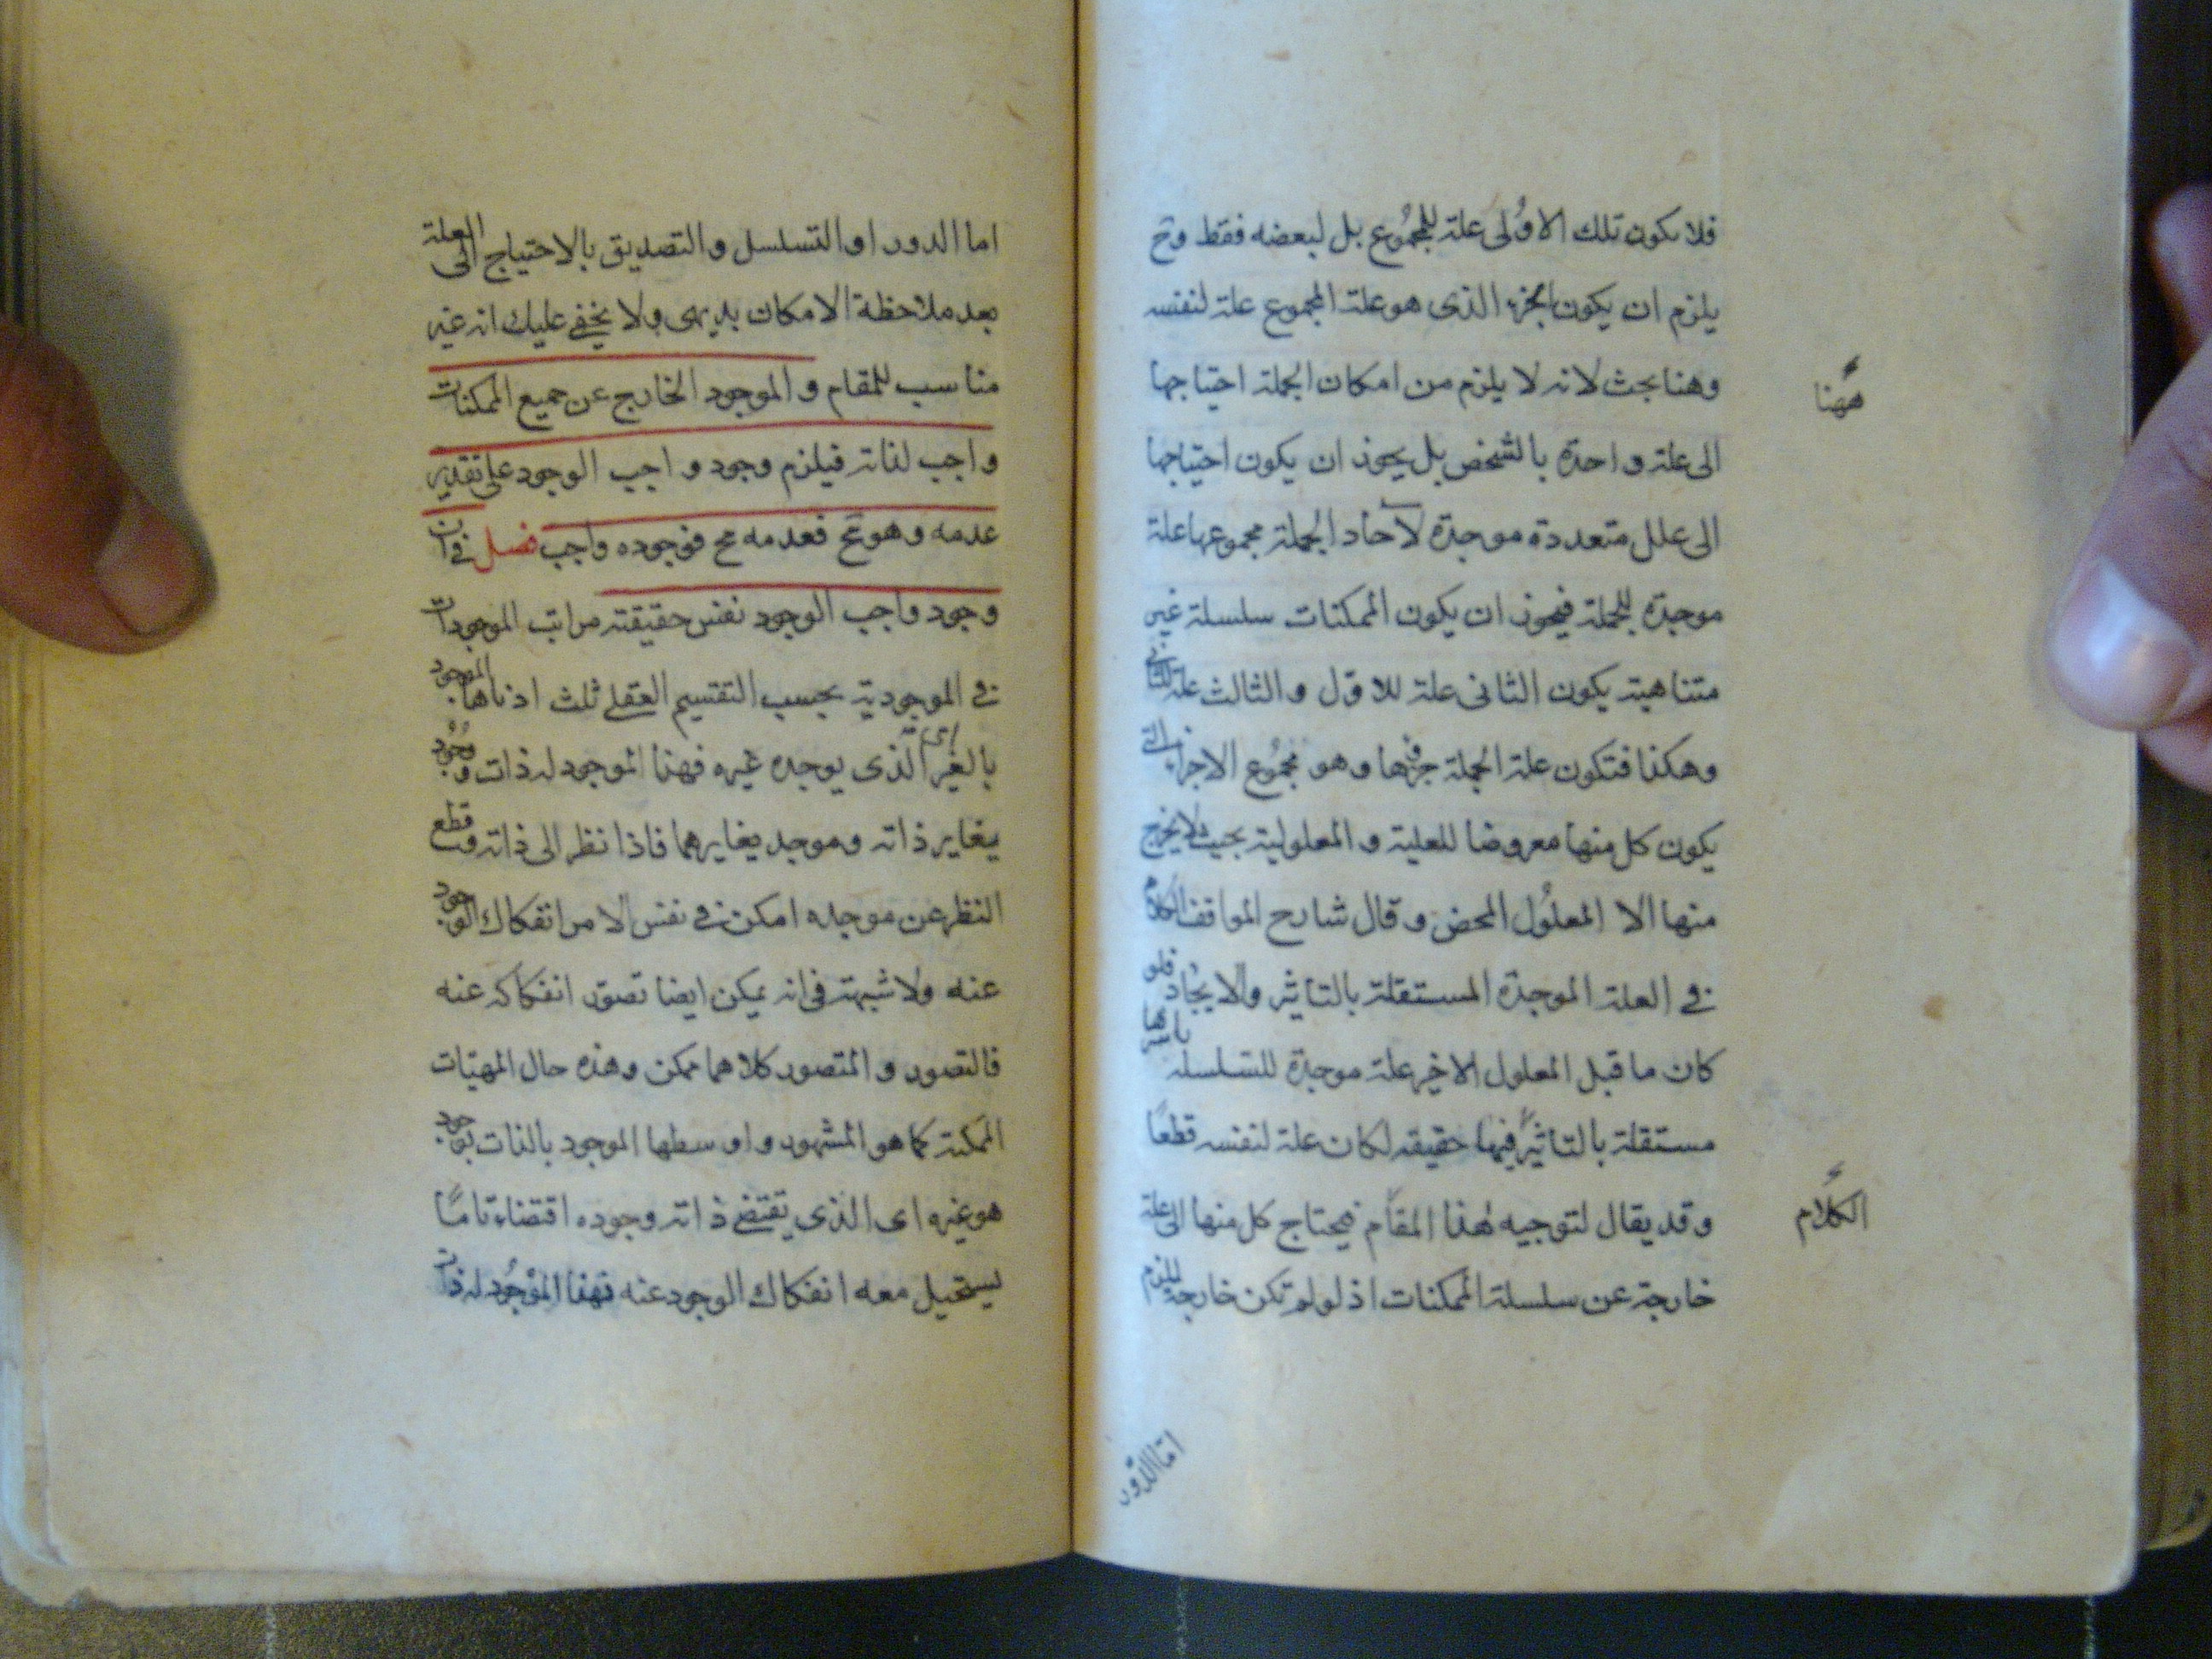 فلا يكون تلك الاولى علة للمجموع بل لبعضه فقط وح
يلزم ان يكون الجزء الذى هو علة المجموع علة لنفسه
وهنا بحث لانه لا يلزم من امكان الجملة احتياجها
ههنا
الى علة واحدة بالشخص بل يجوز ان يكون احتياجها
الى علل متعددة موجدة لآحاد الجملة مجموعها علة
موجدة للجملة فيجوز ان يكون الممكنات سلسلة غير
متناهية يكون الثانى علة للاول والثالث علة للثانى
وهكذا فتكون علة الجملة جزءها وهو مجموع الاجزاء التى
يكون كل منها معروضا للعلية والمعلولية بحيث لا يخرج
منها الا المعلول المحض وقال شارح المواقف الكلام
فى العلة الموجدة المستقلة بالتاثير والايجاد فلو
كان ما قبل المعلول الاخير علة موجدة للسلسلة باسرها
مستقلة بالتاثير فيها حقيقه لكان علة لنفسه قطعًا
وقد يقال لتوجيه هذا المقام فيحتاج كل منها الى علة
الكلام
خارجة عن سلسلة الممكنات اذ لو لم تكن خارجة للزم
اما الدور
اما الدور او التسلسل والتصديق بالاحتياج الى العلة
بعد ملاحظة الامكان بديهى ولا يخفى عليك انه غير
مناسب للمقام والموجود الخارج عن جميع الممكنات
واجب لذاته فيلزم وجود واجب الوجود على تقدير
عدمه وهو مح فعدمه مح فوجوده واجب فصل فى ان
وجود واجب الوجود نفس حقيقته مراتب الموجودات
فى الموجودية بحسب التقسيم العقلى ثلث ادناها الموجود
بالغير اى الذى يوجده غيره فهذا الموجود له ذات ووجود
يغاير ذاته وموجد يغايرهما فاذا نظر الى ذاته وقطع
النظر عن موجده امكن فى نفس الامر انفكاك الوجود
عنه ولا شبهة فى انه يمكن ايضا تصور انفكاكه عنه
فالتصور والمتصور كلاهما ممكن وهذه حال المهيّات
الممكنة كما هو المشهور واوسطها الموجود بالذات بوجود
هو غيره اى الذى يقتضى ذاته وجوده اقتضاء تامًا
يستحيل معه انفكاك الوجود عنه فهذا الموجود له ذات